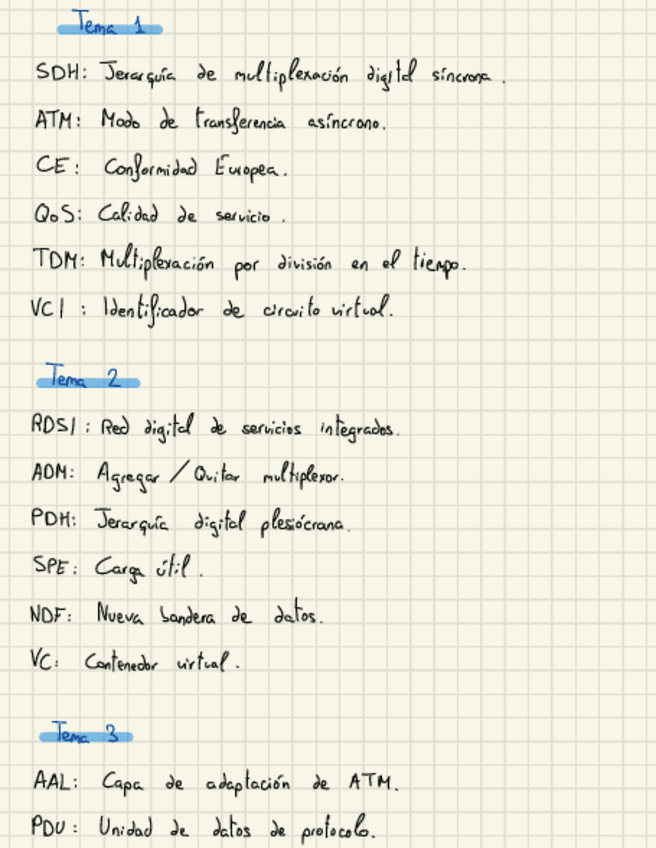 Tema 1
SDH: Jerarquía de multiplexación digital síncrona.
ATM: Modo de transferencia asíncrono.
CE: Conformidad Europea.
QoS: Calidad de servicio.
TDM: Multiplexación por división en el tiempo.
VCI: Identificador de circuito virtual.
Tema 2
RDSI: Red digital de servicios integrados.
ADM: Agregar / Quitar multiplexor.
PDH: Jerarquía digital plesiócrana.
SPE: Carga útil.
NDF: Nueva bandera de datos.
VC: Contenedor virtual.
Tema 3
AAL: Capa de adaptación de ATM.
PDU: Unidad de datos de protocolo.